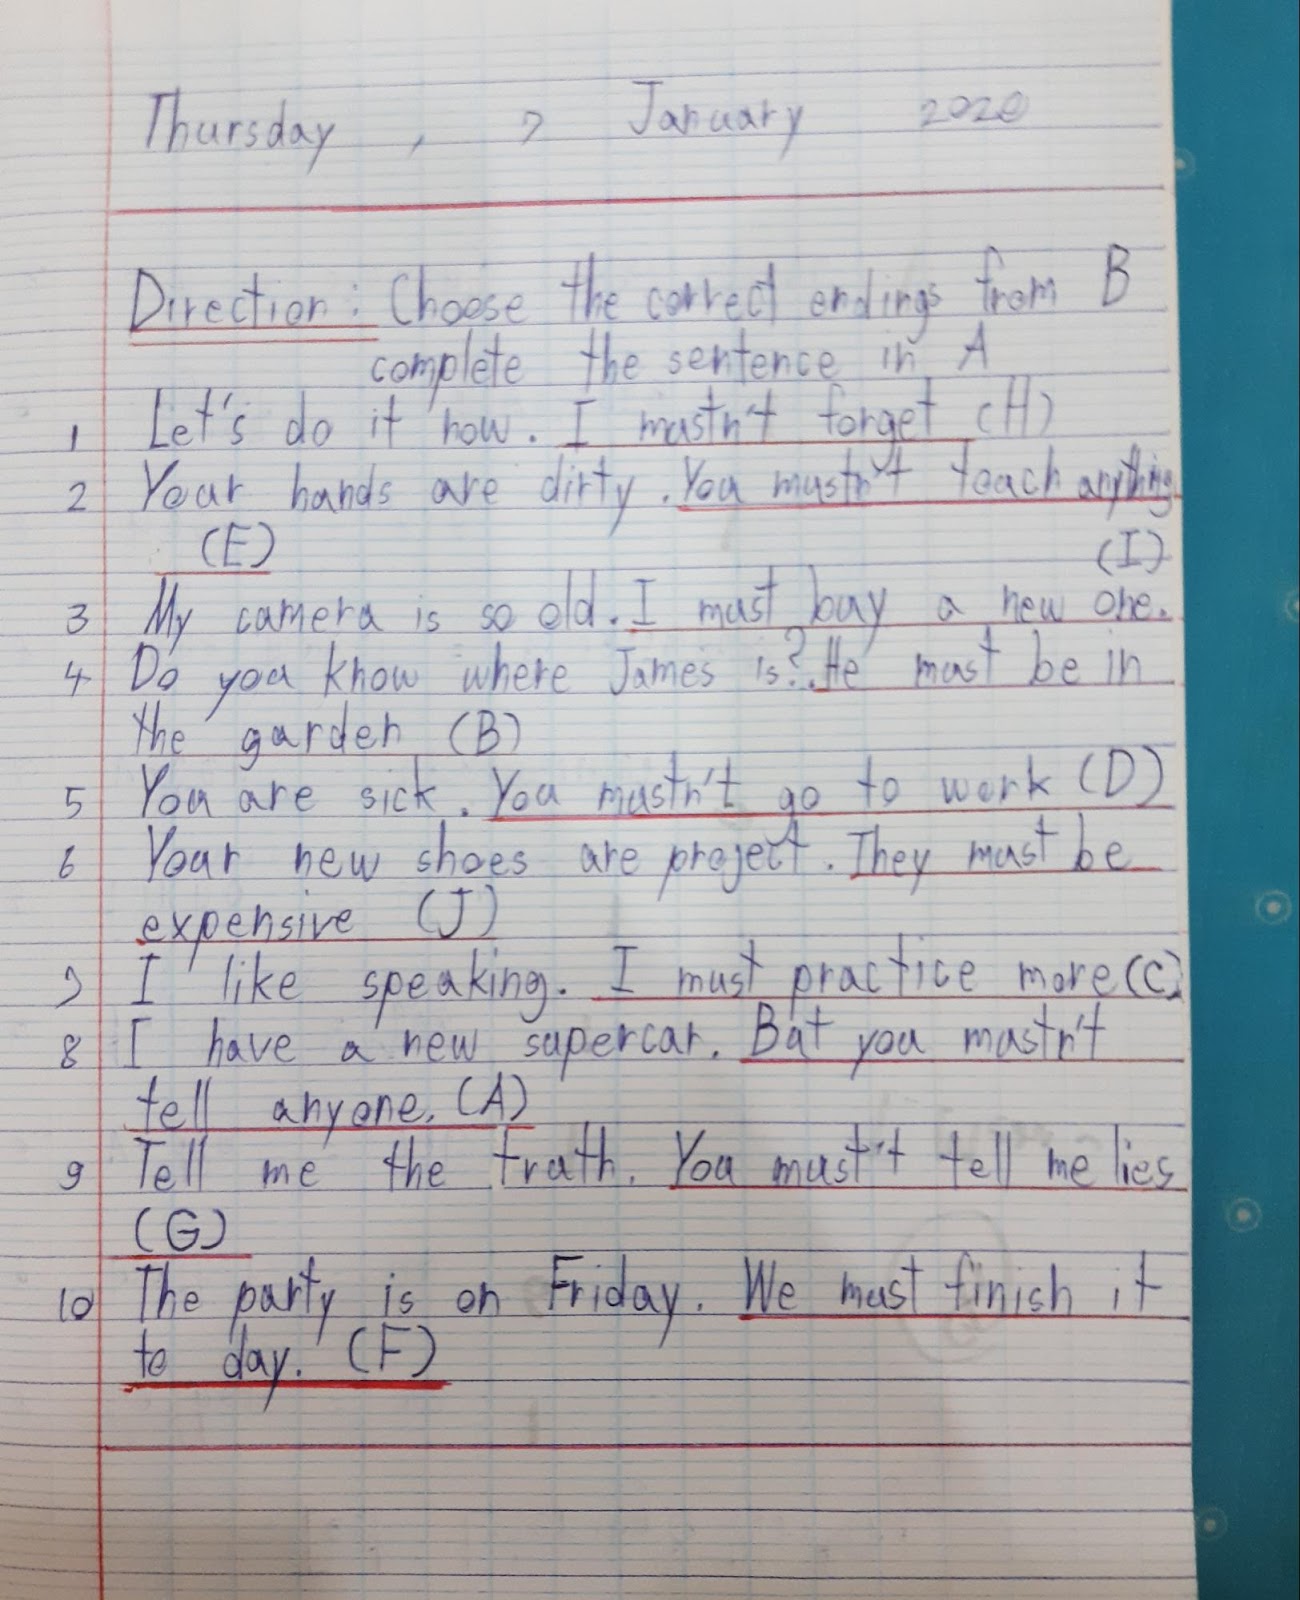 Thursday , 7 January 2020
Direction: Choose the correct endings from B
complete the sentence in A
1 Let's do it now. I mustn't forget (H)
2 Your hands are dirty. You mustn't teach anything
(E)
(I)
3 My camera is so old. I must buy a new one.
4 Do you know where James is?. He must be in
the garden (B)
5 You are sick. You mustn't go to work (D)
6 Your new shoes are project. They must be
expensive (J)
7 I like speaking. I must practice more (C)
8 I have a new supercar. But you mustn't
tell anyone. (A)
9 Tell me the truth. You must't tell me lies
(G)
10 The party is on Friday. We must finish it
to day. (F)